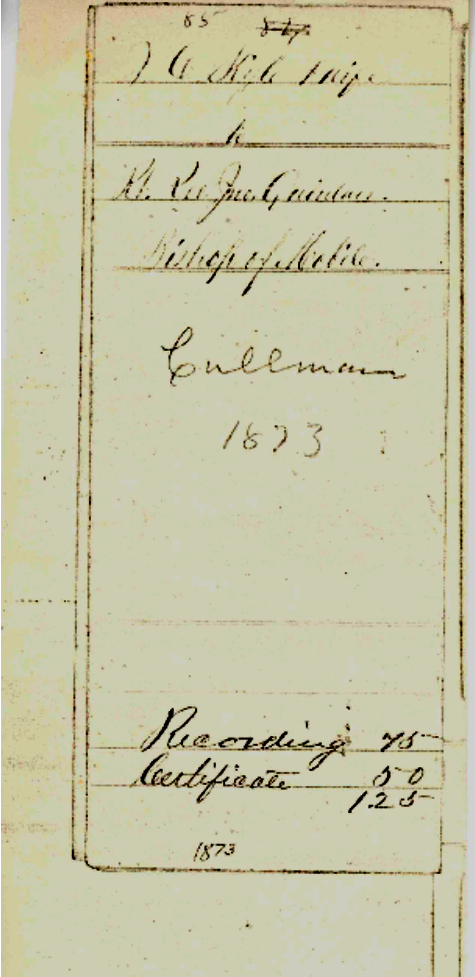 85
Kyle
to
Rt. Rev Jno. Quinlan.
Bishop of Mobile.
Cullman
1873
Recording 75
Certificate 50
1.25
1873